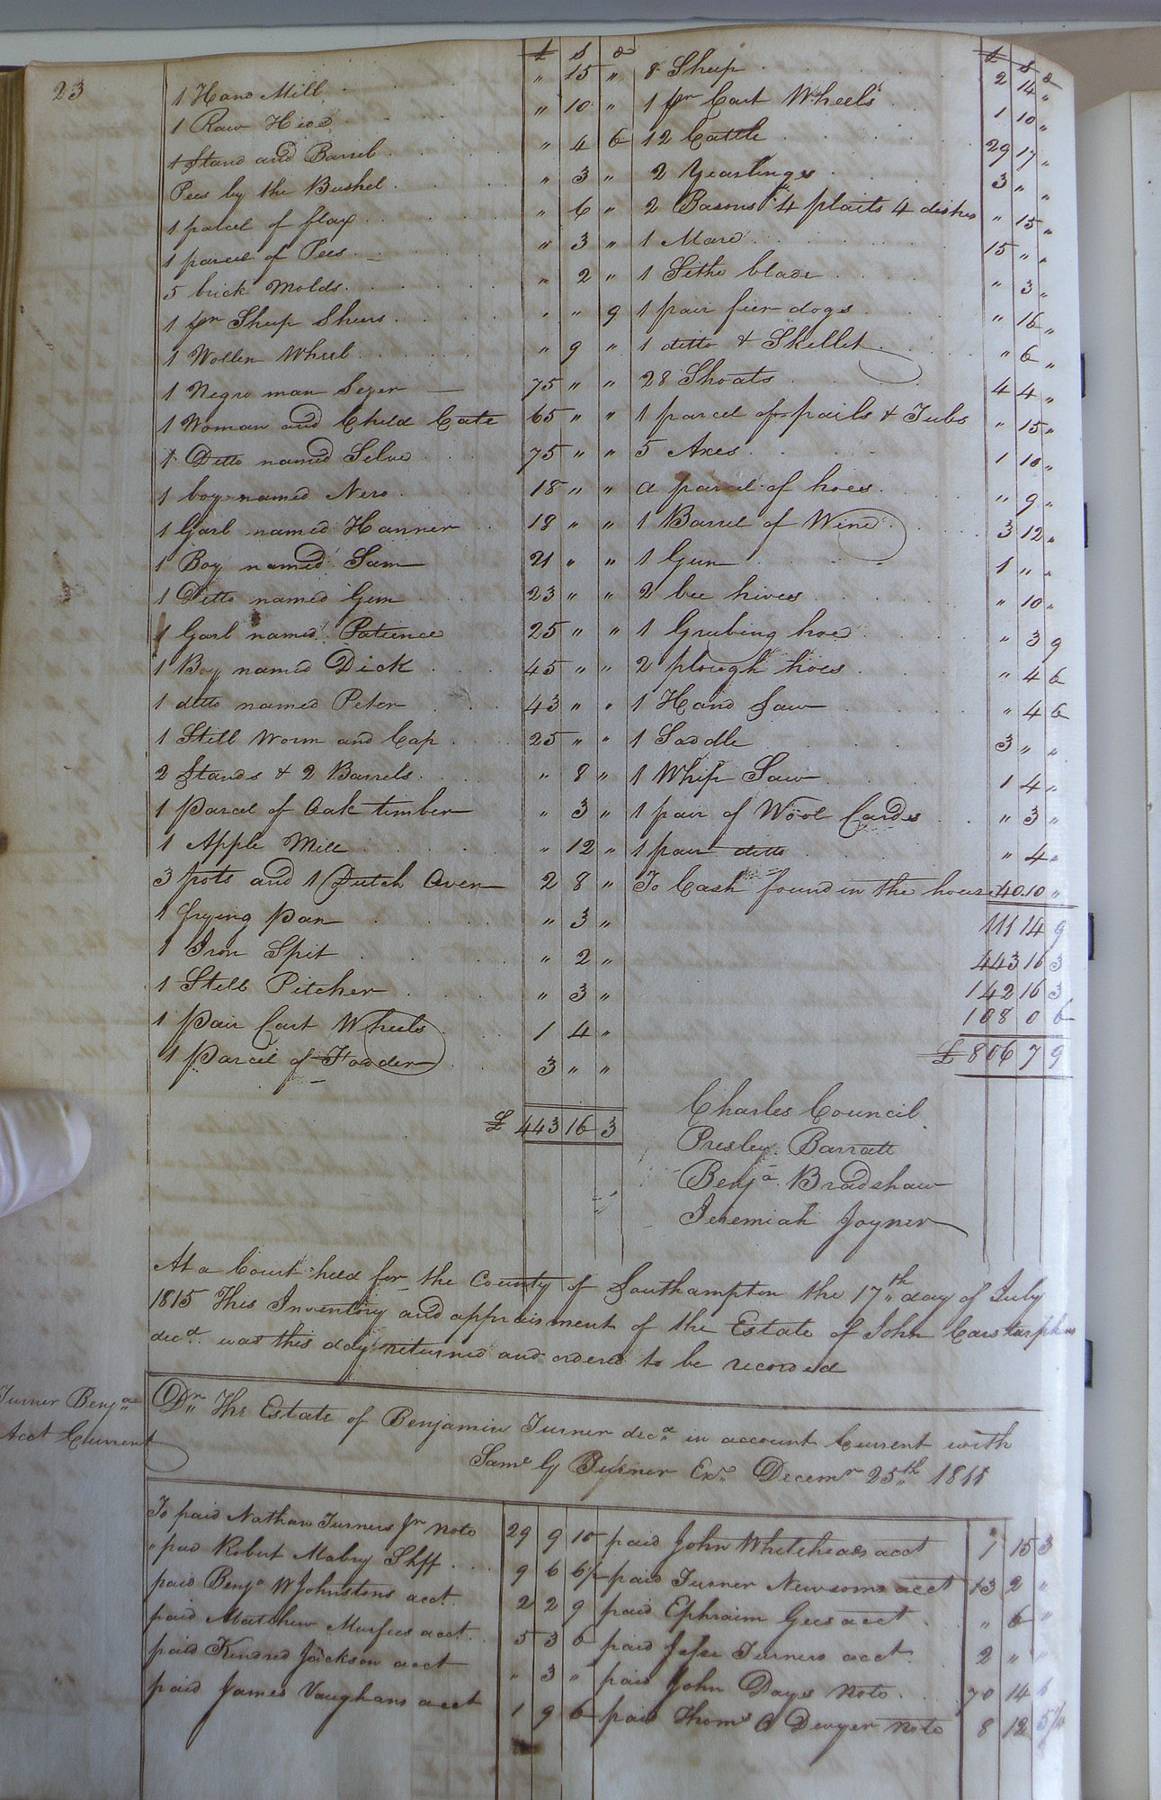 23
£ s d
1 Hand Mill " 15 "
1 Raw Hide " 10 "
1 Stand and Barrel " 4 6
Pees by the Bushel " 3 "
1 parcel of flax " 6 "
1 parcel of Pees " 3 "
5 brick Molds " 2 "
1 pr Sheep Shears " " 9
1 Wollen Wheel " 9 "
1 Negro man Sezer 75 " "
1 Woman and Child Cate 65 " "
1 Ditto named Selve 75 " "
1 boy named Nero 18 " "
1 Garl named Hanner 18 " "
1 Boy named Sam 21 " "
1 Ditto named Gim 23 " "
1 Garl named Patience 25 " "
1 Boy named Dick 45 " "
1 ditto named Peter 43 " "
1 Still Worm and Cap 25 " "
2 Stands & 2 Barrels " 8 "
1 Parcel of Oak timber " 3 "
1 Apple Mill " 12 "
3 pots and 1 Dutch Oven 2 8 "
1 frying Pan " 3 "
1 Iron Spit " 2 "
1 Still Pitcher " 3 "
1 Pair Cart Wheels 1 4 "
1 Parcel of Fodder 3 " "
£ 443 16 3
£ s d
8 Sheep 2 14 "
1 pr Cart Wheels 1 10 "
12 Cattle 29 17 "
2 Yearlinges 3 " "
2 Basons 4 plaits 4 dishes " 15 "
1 Mare 15 " "
1 Sithe blade " 3 "
1 pair fier dogs " 16 "
1 ditto & Skellet " 6 "
28 Shoats 4 4 "
1 parcel of pails & Tubs " 15 "
5 Axes 1 10 "
a parcel of hoes " 9 "
1 Barrel of Wine 3 12 "
1 Gun 1 " "
2 bee hives " 10 "
1 Grubing hoe " 3 9
2 plough hoes " 4 6
1 Hand Saw " 4 6
1 Saddle 3 " "
1 Whip Saw 1 4 "
1 pair of Wool Cardes " 3 "
1 pair ditto " 4 "
To Cash found in the house 40 10 "
111 14 9
443 16 3
142 16 3
108 0 6
£ 806 7 9
Charles Council
Presley Barratt
Benja Bradshaw
Jeremiah Joyner
At a Court held for the County of Southampton the 17th day of July
1815 This Inventory and appraisment of the Estate of John Carstarphen
decd was this day returned and ordered to be recorded
Turner Benja
Acct Current
Dr The Estate of Benjamin Turner decd in account Current with
Saml G Turner Exr Decemr 25th 1811
To paid Nathan Turners Jr note 29 9 10
" paid Robert Mabry Shff 9 6 6½
paid Benja W Johnstons acct 2 2 9
paid Matthew Murfees acct 5 3 6
paid Kindred Jackson acct " 3 "
paid James Vaughans acct 1 9 6
paid John Whiteheads acct 15 3
paid Turner Newsoms acct 13 2 "
paid Ephraim Gees acct " 6 "
paid Jesse Turners acct 2 " "
paid John Days note 70 14 6
paid Thoms Dwyer note 8 12